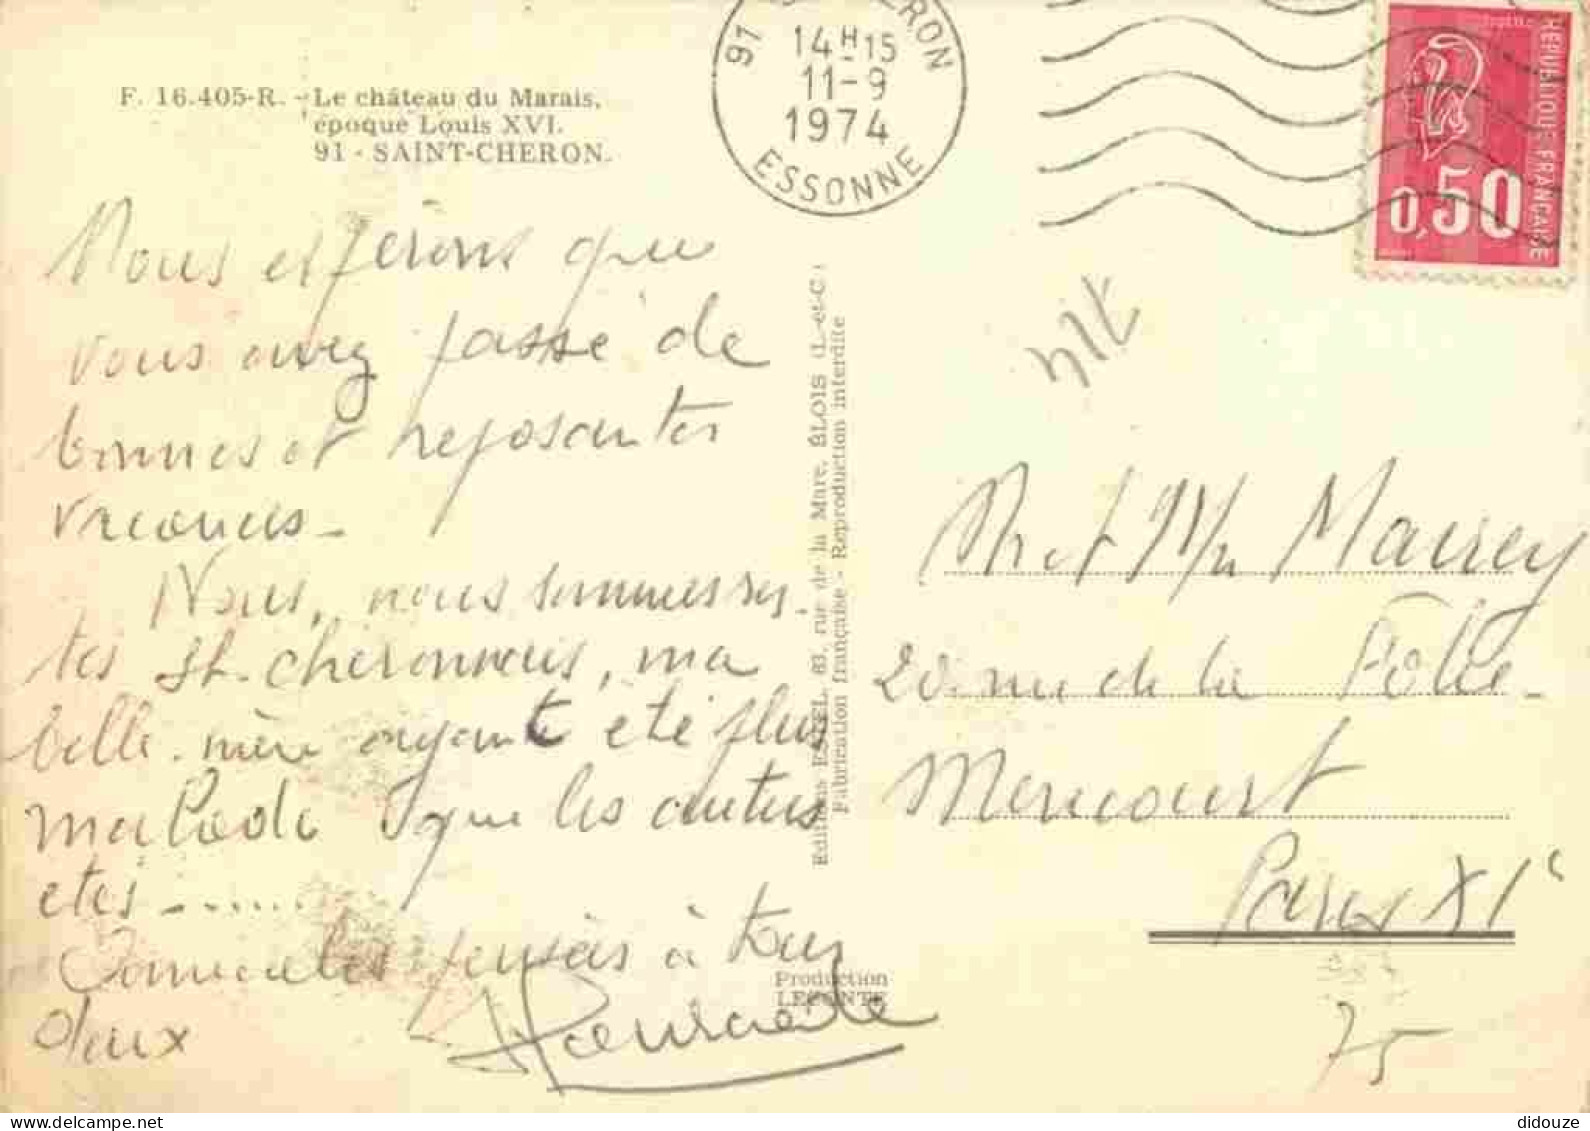 F. 16.405-R. - Le château du Marais,
époque Louis XVI.
91 - SAINT-CHERON.
91 CHERON
14H15
11-9
1974
ESSONNE
REPUBLIQUE FRANCAISE
0,50
Nous espérons que
vous avez passé de
bonnes et reposantes
vacances -
Nous, nous sommes res.
tés St. Cheronnais, ma
belle-mère ayant été plus
malade que les autres
étés ......
pensées à tous
deux
Editions ESTEL, 63, rue de la Mare, BLOIS (L.-et-C.)
Fabrication française - Reproduction interdite
Production
LECONTE
Mr et Mme Mairey
20. rue de la Folie
Mericourt
Paris XIe
75
didouze